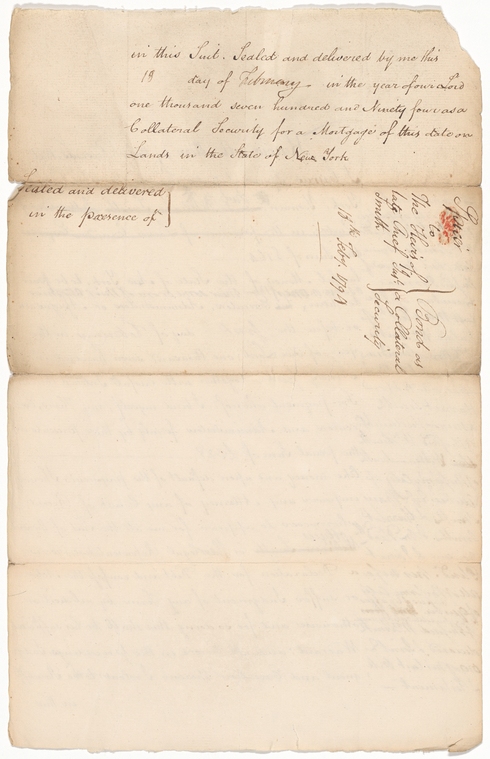 in this Suit. Sealed and delivered by me this
18 day of February in the year of our Lord
one thousand seven hundred and Ninety four as a
Collateral Security for a Mortgage of this date on
Lands in the State of New York
Sealed and delivered
in the presence of
to
The Heirs of
late Chief Jus.
Smith
Bond as
a Collateral
Security
18th Feby. 1794